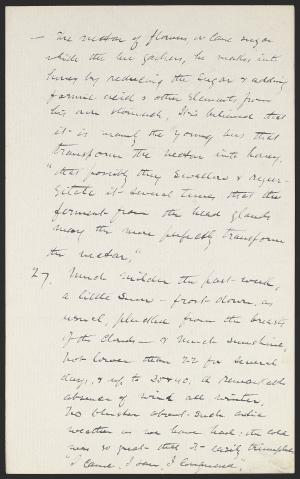 — The nectar of flowers, or cane sugar
which the bee gathers, he makes into
honey by reducing the sugar & adding
formic acid & other elements from
his own stomach. It is believed that
it is mainly the young bees that
transform the nectar into honey,
"that possibly they swallow & regur-
gitate it several times that the
ferment from the head glands
may the more perfectly transform
the nectar."
27. Much milder the past week,
a little snow - frost down, as
usual, plucked from the breasts
of the clouds — & much sunshine,
Not lower than 22 for several
days, & up to 35 & 40. A remarkable
absence of wind all winter.
No bluster about such
weather as we have had; the cold
was so great that it easily triumphed
"I came, I saw, I conquered".